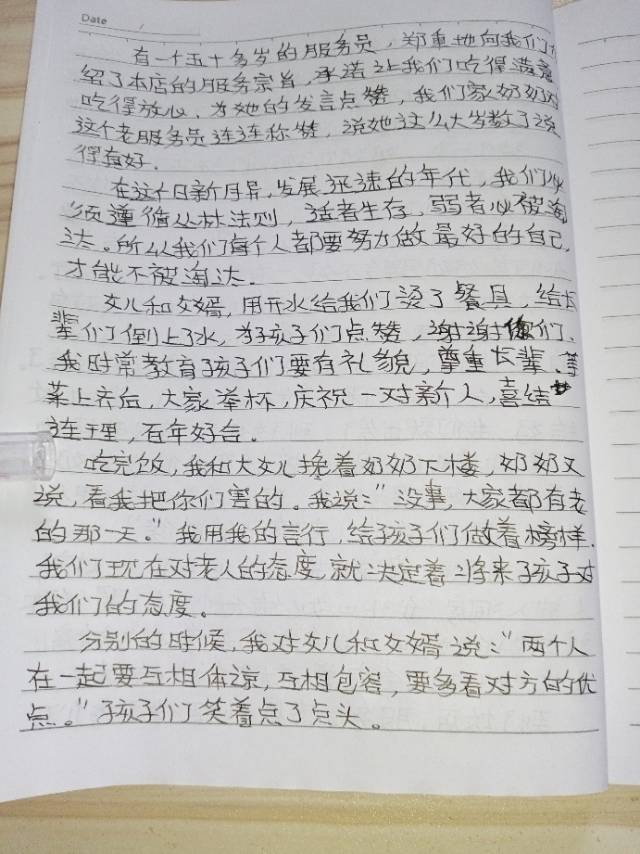 Date
有一个五十多岁的服务员，郑重地向我们介
绍了本店的服务宗旨，承诺让我们吃得满意
吃得放心，为她的发言点赞，我们家奶奶对
这个老服务员连连称赞，说她这么大岁数了说
得真好。
在这个日新月异，发展迅速的年代，我们必
须遵循丛林法则，适者生存，弱者必被淘
汰。所以我们每个人都要努力做最好的自己，
才能不被淘汰。
女儿和女婿，用开水给我们烫了餐具，给长
辈们倒上了水，为孩子们点赞，谢谢你们、
我时常教育孩子们要有礼貌，尊重长辈、等
菜上齐后，大家举杯，庆祝一对新人，喜结
连理，百年好合。
吃完饭，我和大女儿搀着奶奶下楼，奶奶又
说，看我把你们害的。我说："没事，大家都有老
的那一天。"我用我的言行，给孩子们做着榜样，
我们现在对老人的态度，就决定着将来孩子对
我们的态度。
分别的时候，我对女儿和女婿说："两个人
在一起要互相体谅，互相包容，要多看对方的优
点。"孩子们笑着点了点头。